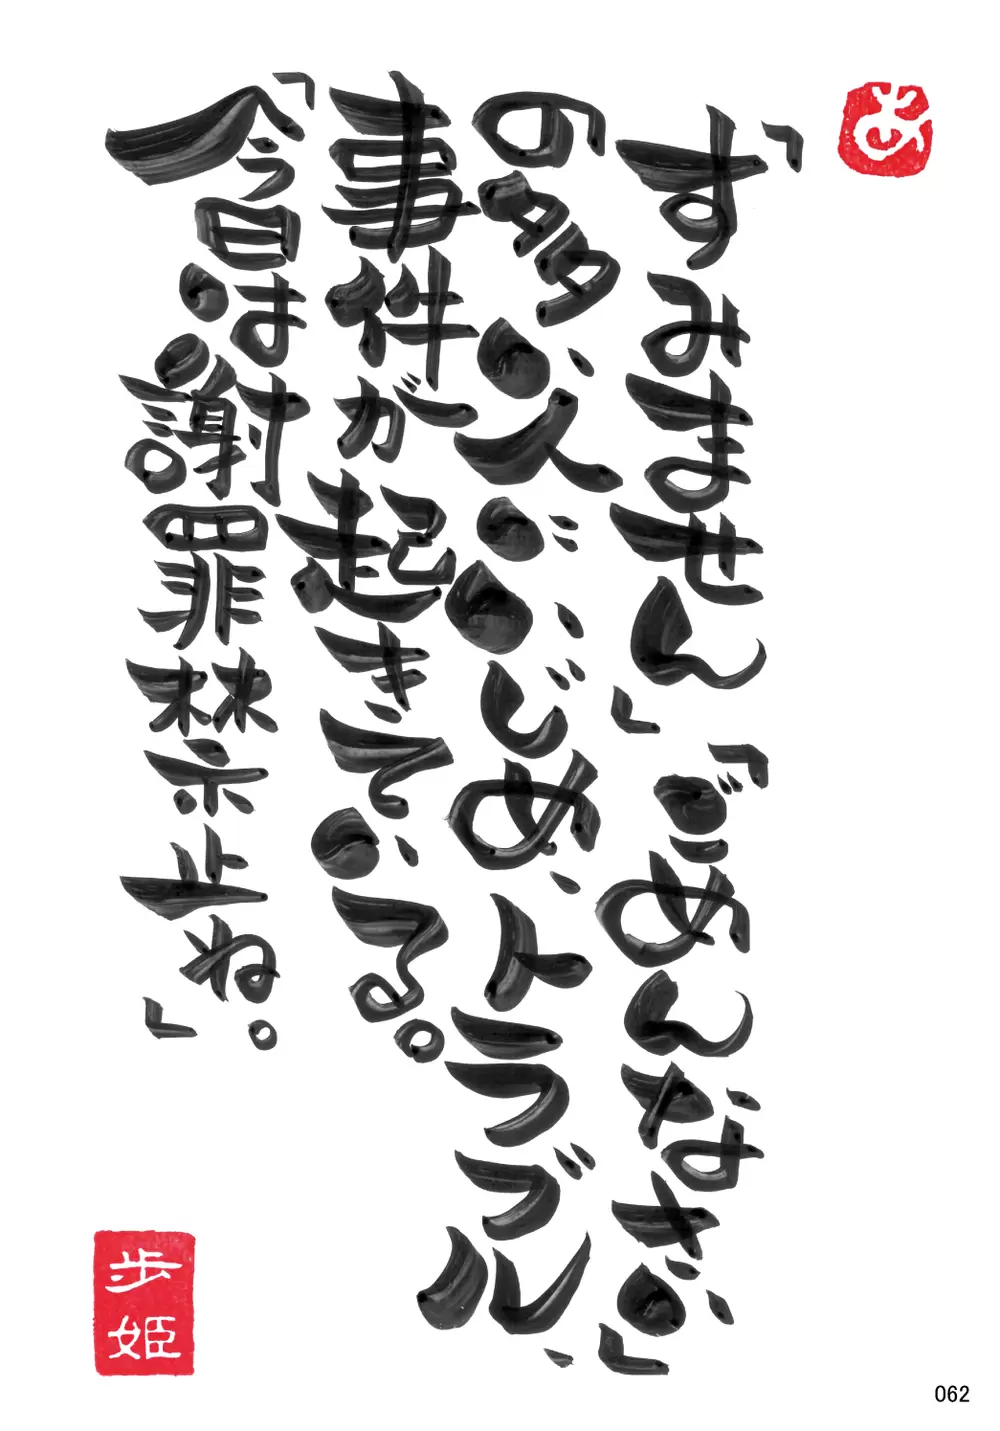 あ
「すみません」「ごめんなさい」
の多い人がいじめ、トラブル、
事件が起きている。
「今日は謝罪禁止ね。」
歩姫
062